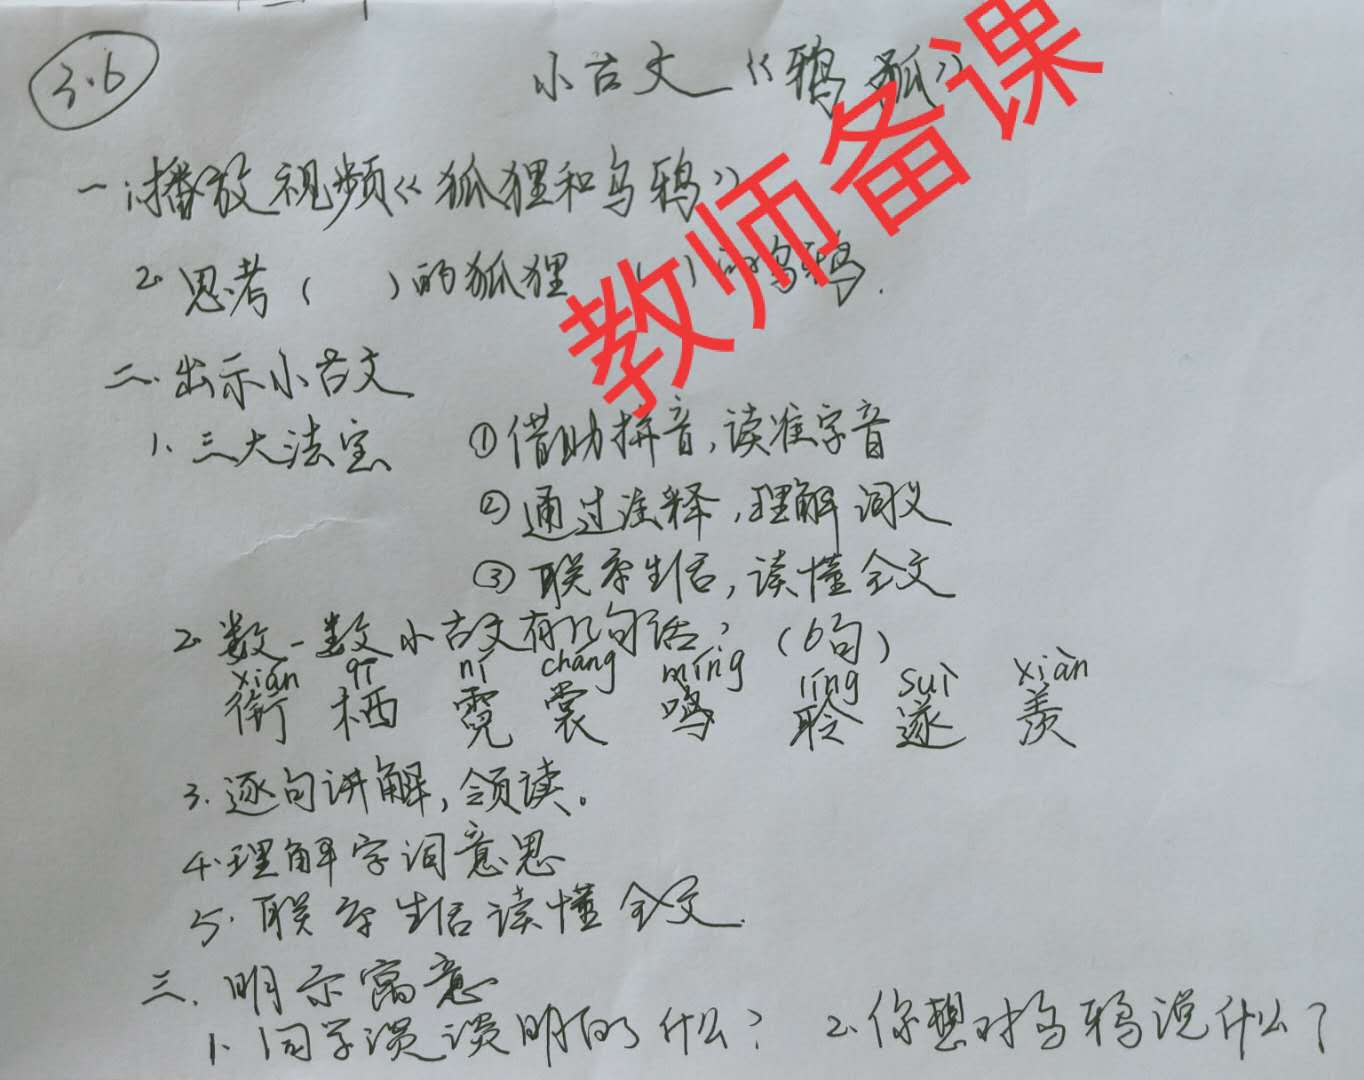 3.6
小古文《鸦狐》
一、1.播放视频《狐狸和乌鸦》
2.思考（ ）的狐狸 （ ）的乌鸦.
二、出示小古文
1.三大法宝 ①借助拼音,读准字音
②通过注释,理解词义
③联系生活,读懂全文
2.数一数小古文有几句话?（6句）
xián qī ní cháng míng líng suì xiàn
衔 栖 霓 裳 鸣 聆 遂 羡
3.逐句讲解,领读。
4.理解字词意思
5.联系生活读懂全文.
三.明示寓意
1.同学谈谈明白了什么? 2.你想对乌鸦说什么?
教师备课